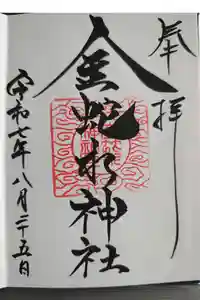 奉拝
金蛇水神社
令和七年八月二十五日